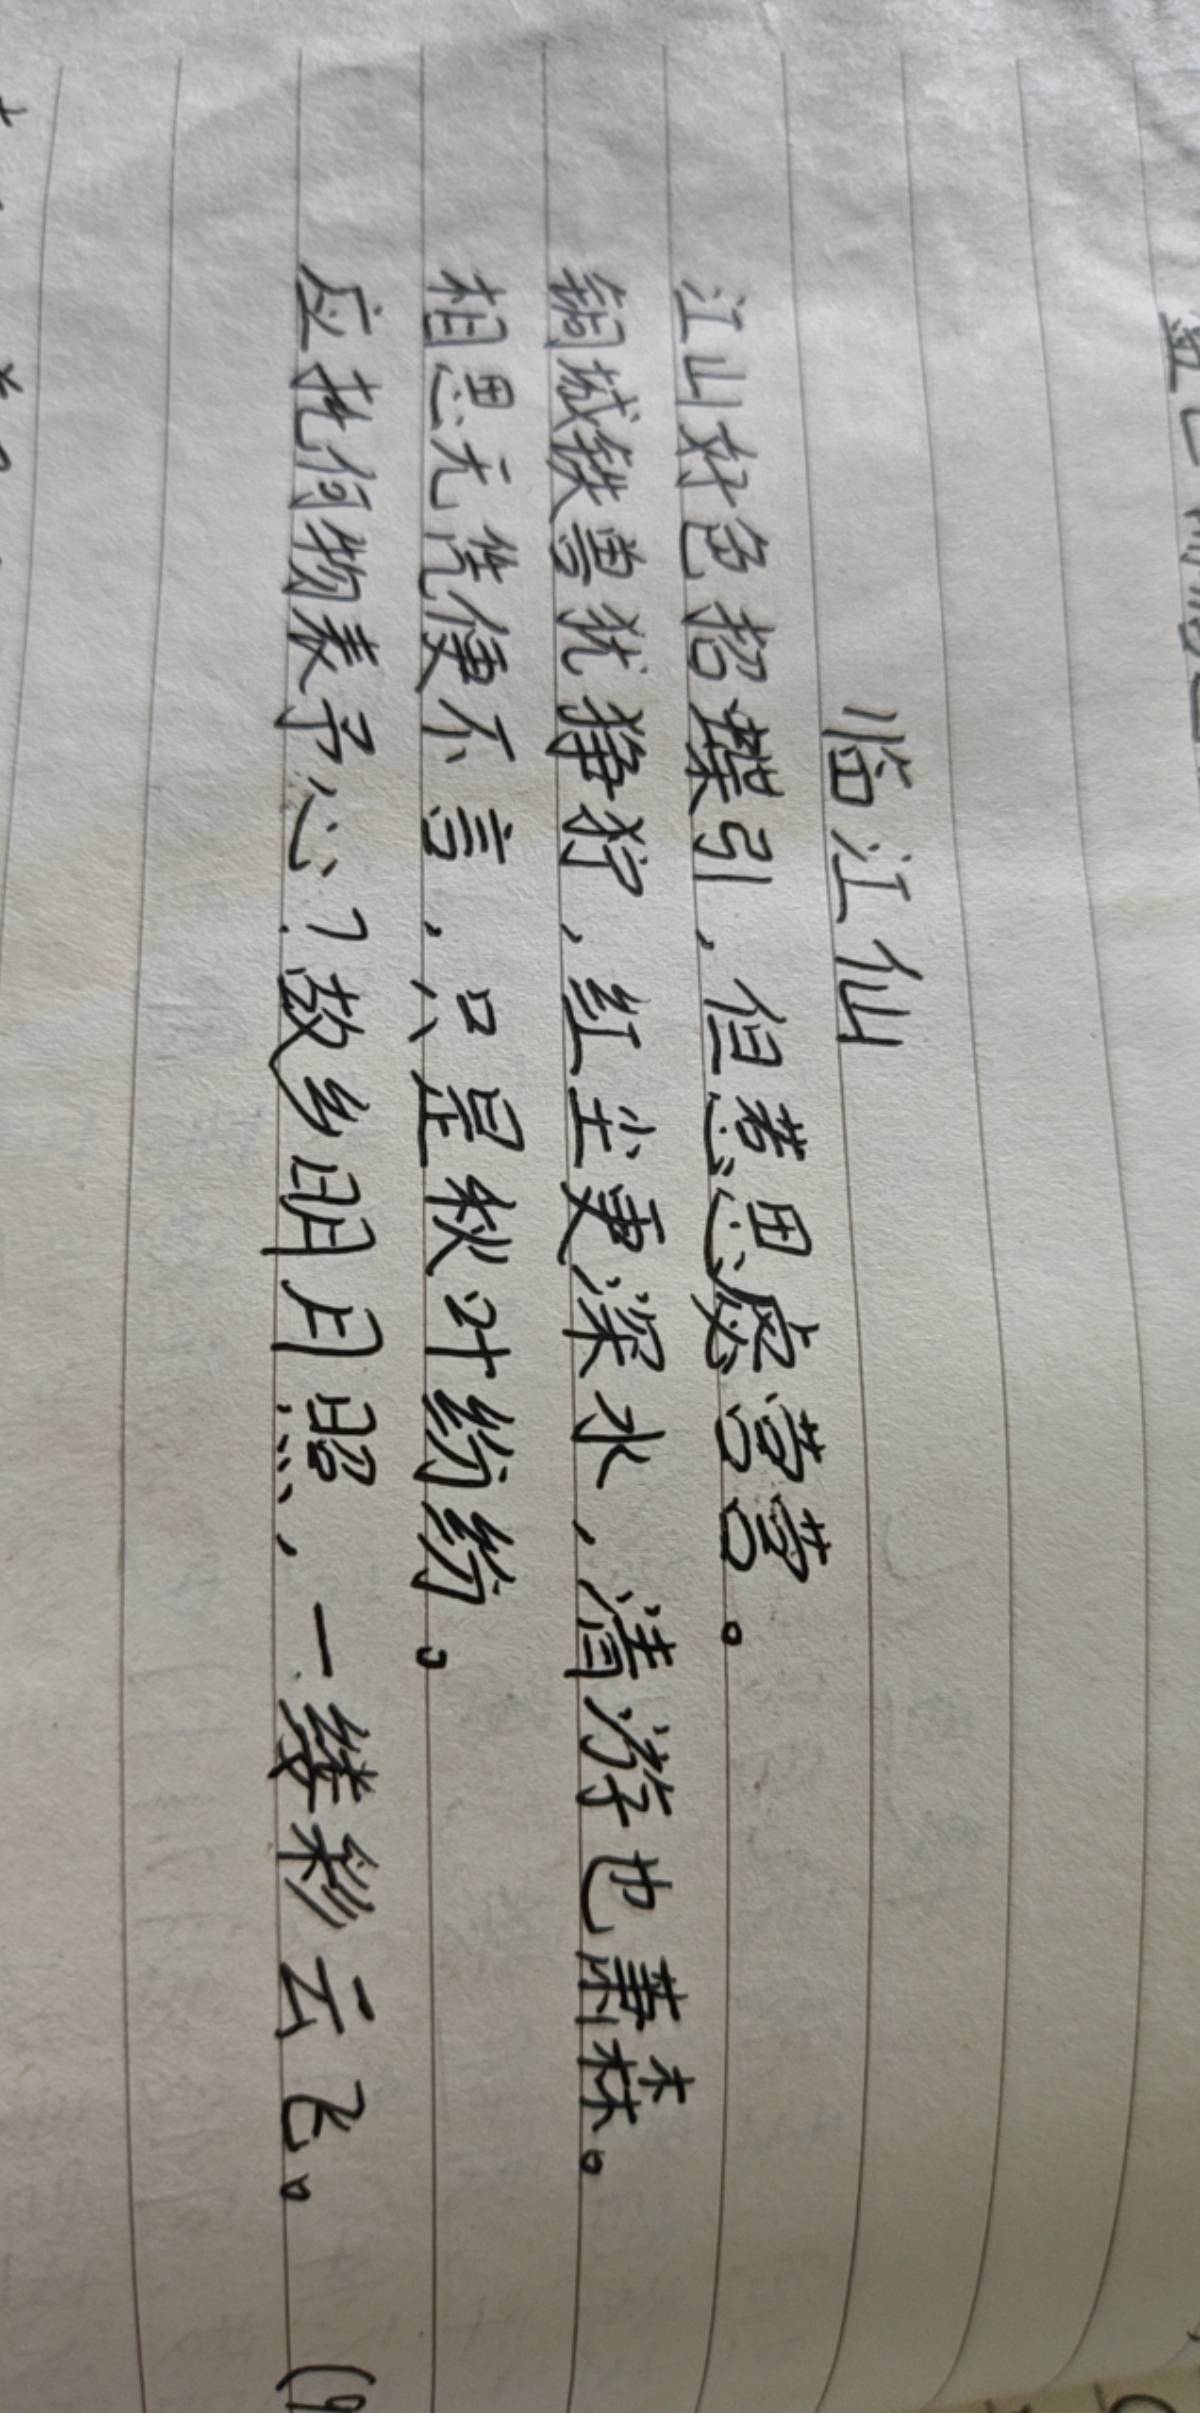 临江仙
江山好色招蝶引，但惹思虑营营。
铜城铁兽犹狰狞，红尘更深水，清游也萧森。
相思无凭便不言，只是秋叶纷纷。
应托何物表予心？故乡明月照，一缕彩云飞。